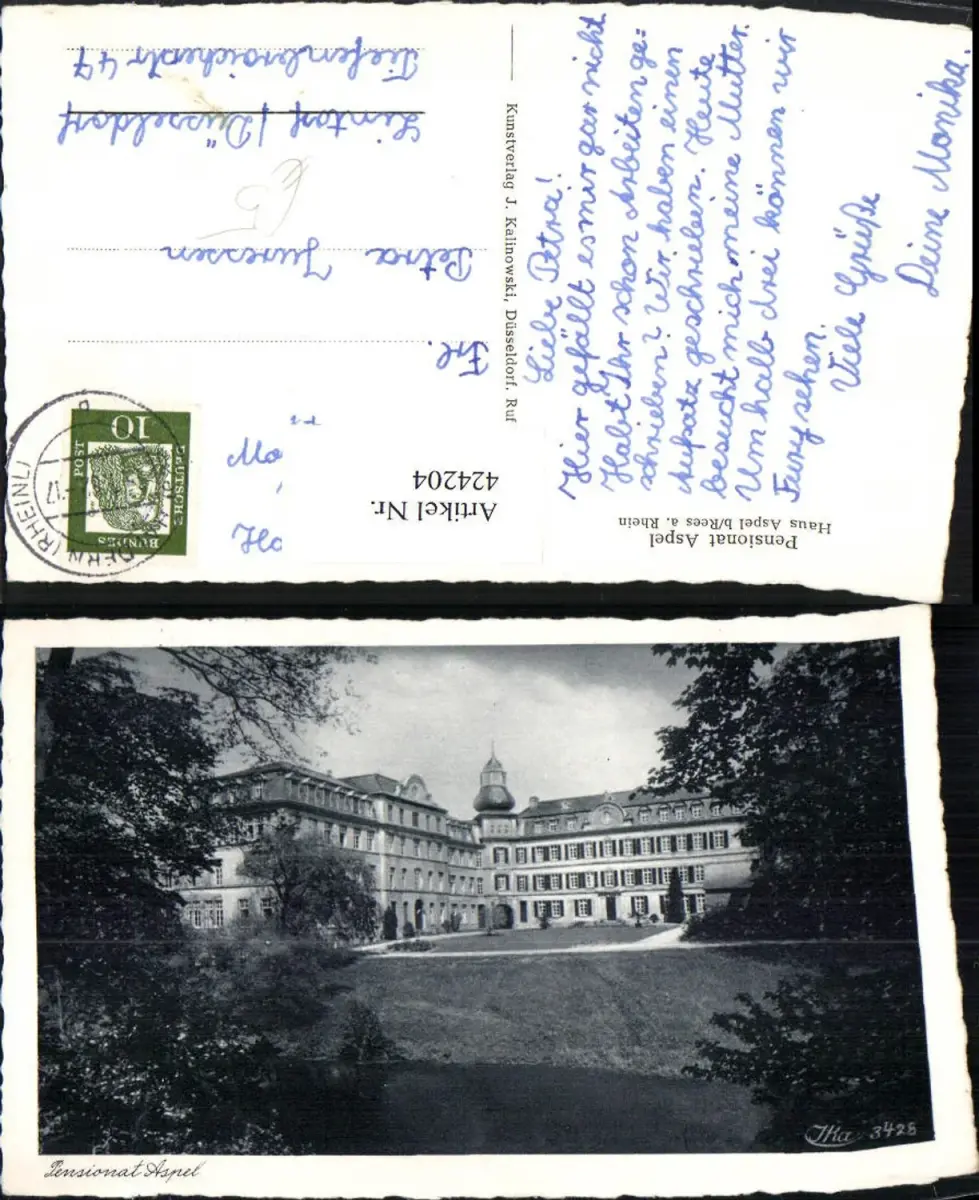 Pensionat Aspel
Haus Aspel b/Rees a. Rhein
Liebe Petra!
Hier gefällt es mir gar nicht
Habt Ihr schon Arbeiten ge=
schrieben? Wir haben einen
Aufsatz geschrieben. Heute
besucht mich meine Mutter.
Um halb drei können wir
Fury sehen.
Viele Grüße
Deine Monika.
Kunstverlag J. Kalinowski, Düsseldorf. Ruf
Artikel Nr.
424204
DEUTSCHE
BUNDES
POST
10
(RHEINL)
Frl.
Petra Juressen
Lintorf / Düsseldorf
47
Pensionat Aspel
JKa 3428